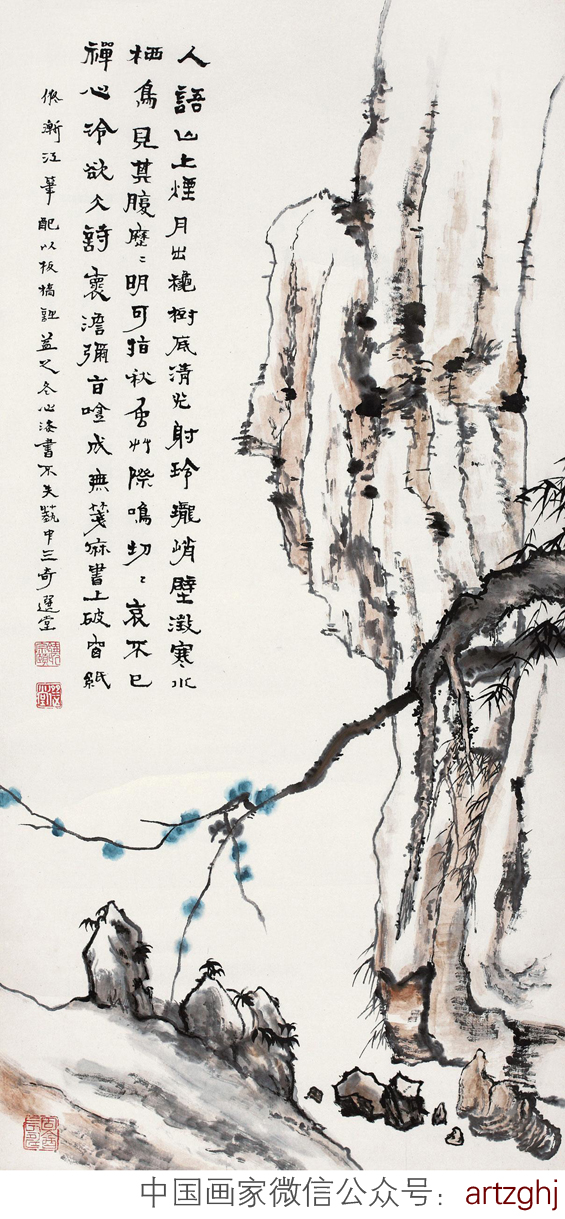 人語山上煙月出穐樹底清光射玲瓏峭壁澂寒水
栖鳥見其腹歷〻明可指秋虫艸際鳴切〻哀不已
禪心冷欲仌詩褱澹彌旨唫成無箋麻書上破窗紙
倣漸江筆配以板橋詩益之冬心漆書不失藝中三奇選堂
中国画家微信公众号：artzghj